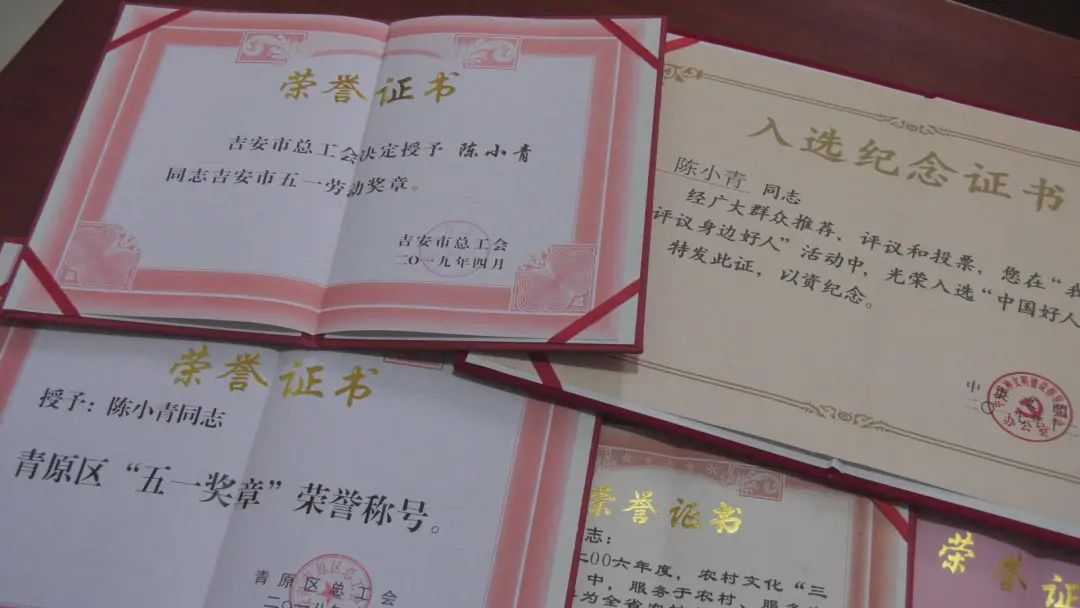 荣誉证书
吉安市总工会决定授予 陈小青
同志吉安市五一劳动奖章。
吉安市总工会
二〇一九年四月
入选纪念证书
陈小青 同志
经广大群众推荐、评议和投票，您在“我
评议身边好人”活动中，光荣入选“中国好人
特发此证，以资纪念。
中
荣誉证书
授予：陈小青同志
青原区“五一奖章”荣誉称号。
青原区总工会
二〇一八年
荣誉证书
志：
二00六年度，农村文化“三
中，服务于农村、服务
为全省农村
荣誉证